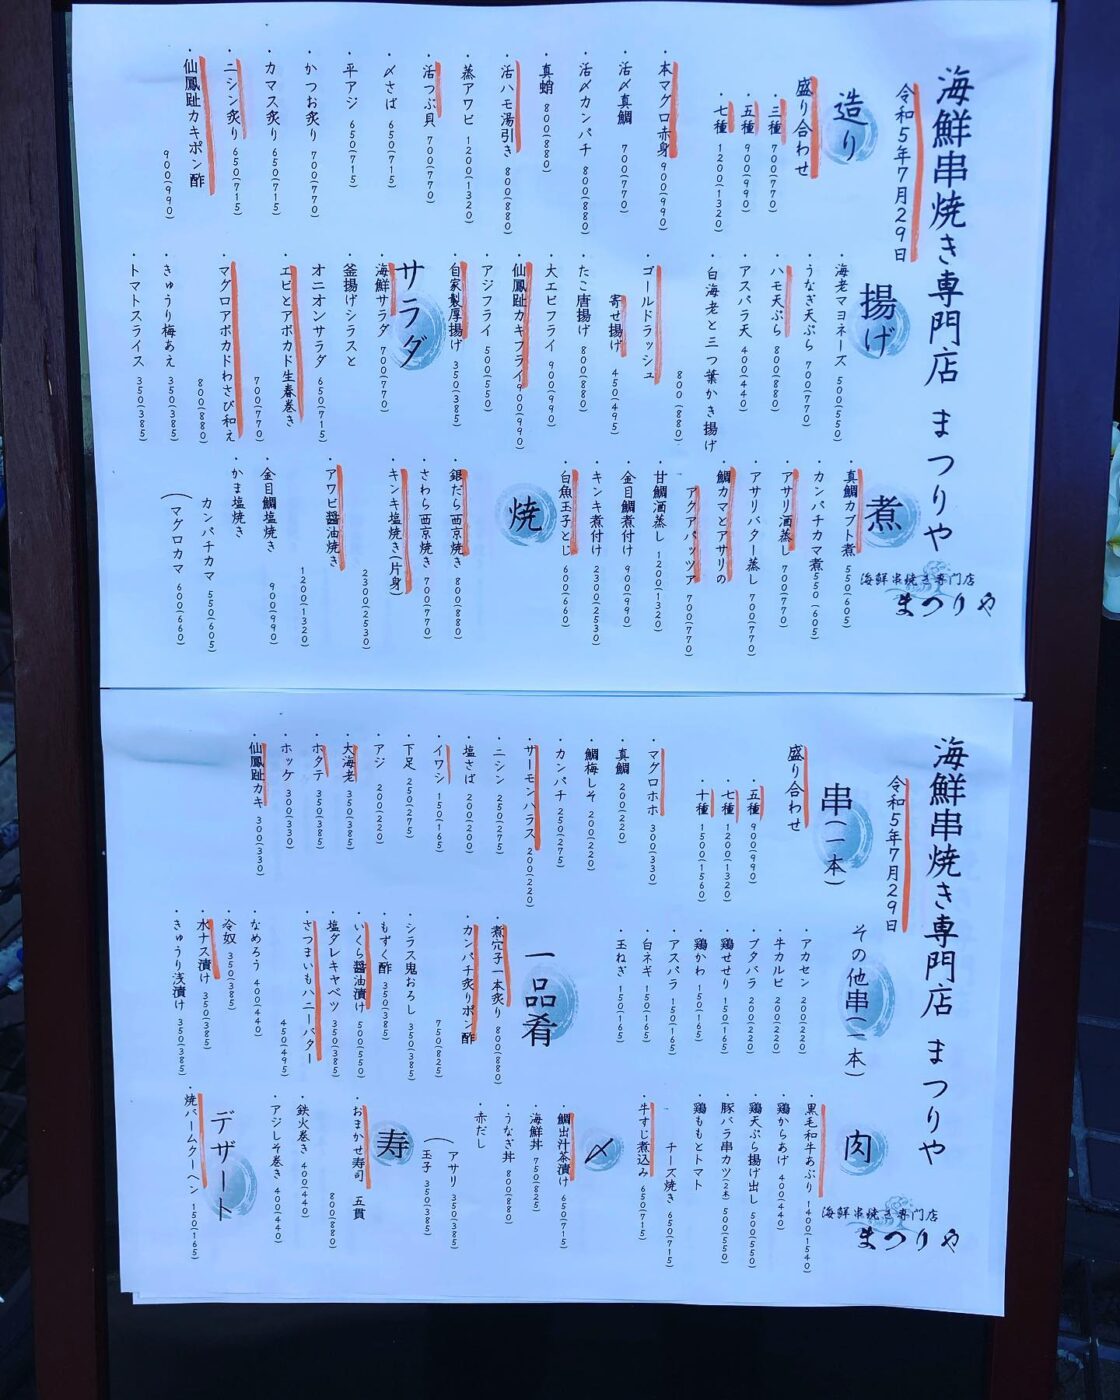 海鮮串焼き専門店 まつりや
令和5年7月29日
造り
盛り合わせ
・三種 700(770)
・五種 900(990)
・七種 1200(1320)
・本マグロ赤身 900(990)
・活〆真鯛 700(770)
・活〆カンパチ 800(880)
・真蛸 800(880)
・活ハモ湯引き 800(880)
・蒸アワビ 1200(1320)
・活つぶ貝 700(770)
・〆さば 650(715)
・平アジ 650(715)
・かつお炙り 700(770)
・カマス炙り 650(715)
・ニシン炙り 650(715)
・仙鳳趾カキポン酢 900(990)
揚げ
・海老マヨネーズ 500(550)
・うなぎ天ぷら 700(770)
・ハモ天ぷら 800(880)
・アスパラ天 400(440)
・白海老と三つ葉かき揚げ 800(880)
・ゴールドラッシュ
寄せ揚げ 450(495)
・たこ唐揚げ 800(880)
・大エビフライ 900(990)
・仙鳳趾カキフライ 900(990)
・アジフライ 500(550)
・自家製厚揚げ 350(385)
サラダ
・海鮮サラダ 700(770)
・釜揚げシラスと
オニオンサラダ 650(715)
・エビとアボカド生春巻き 700(770)
・マグロアボカドわさび和え 800(880)
・きゅうり梅あえ 350(385)
・トマトスライス 350(385)
煮
・真鯛カブト煮 550(605)
・カンパチカマ煮 550(605)
・アサリ酒蒸し 700(770)
・アサリバター蒸し 700(770)
・鯛カマとアサリの
アクアパッツア 700(770)
・甘鯛酒蒸し 1200(1320)
・金目鯛煮付け 900(990)
・キンキ煮付け 2300(2530)
・白魚玉子とじ 600(660)
焼
・銀だら西京焼き 800(880)
・さわら西京焼き 700(770)
・キンキ塩焼き(片身) 2300(2530)
・アワビ醤油焼き 1200(1320)
・金目鯛塩焼き 900(990)
・かま塩焼き
カンパチカマ 550(605)
マグロカマ 600(660)
海鮮串焼き専門店
まつりや
海鮮串焼き専門店 まつりや
令和5年7月29日
串(一本)
盛り合わせ
・五種 900(990)
・七種 1200(1320)
・十種 1500(1560)
・マグロホホ 300(330)
・真鯛 200(220)
・鯛梅しそ 200(220)
・カンパチ 250(275)
・サーモンハラス 200(220)
・ニシン 250(275)
・塩さば 200(220)
・イワシ 150(165)
・下足 250(275)
・アジ 200(220)
・大海老 350(385)
・ホタテ 350(385)
・ホッケ 300(330)
・仙鳳趾カキ 300(330)
その他串(一本)
・アカセン 200(220)
・牛カルビ 200(220)
・ブタバラ 200(220)
・鶏せせり 150(165)
・鶏かわ 150(165)
・アスパラ 150(165)
・白ネギ 150(165)
・玉ねぎ 150(165)
一品肴
・煮穴子一本炙り 800(880)
・カンパチ炙りポン酢 750(825)
・シラス鬼おろし 350(385)
・もずく酢 350(385)
・いくら醤油漬け 500(550)
・塩ダレキャベツ 350(385)
・さつまいもハニーバター 450(495)
・なめろう 400(440)
・冷奴 350(385)
・水ナス漬け 350(385)
・きゅうり浅漬け 350(385)
肉
・黒毛和牛あぶり 1400(1540)
・鶏からあげ 400(440)
・鶏天ぷら揚げ出し 500(550)
・豚バラ串カツ(2本) 500(550)
・鶏ももとトマト
チーズ焼き 650(715)
・牛すじ煮込み 650(715)
〆
・鯛出汁茶漬け 650(715)
・海鮮丼 750(825)
・うなぎ丼 800(880)
・赤だし
アサリ 350(385)
玉子 350(385)
寿
・おまかせ寿司 五貫 800(880)
・鉄火巻き 400(440)
・アジしそ巻き 400(440)
デザート
・焼バームクーヘン 150(165)
海鮮串焼き専門店
まつりや